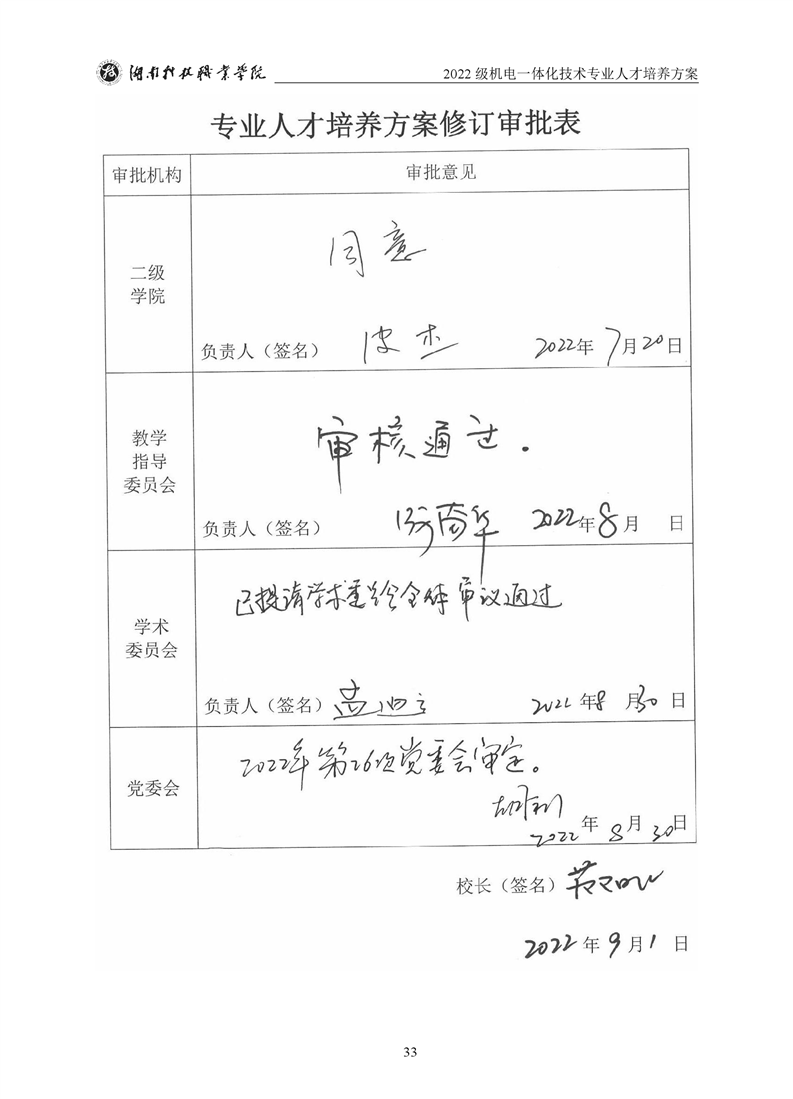 湖南科技职业学院
2022 级机电一体化技术专业人才培养方案
专业人才培养方案修订审批表
审批机构
审批意见
二级
学院
同意
负责人（签名）
皮杰
2022年 7月20日
教学
指导
委员会
审核通过.
负责人（签名）
2022年8月 日
学术
委员会
已提请学术委员会全体审议通过
负责人（签名）
孟迎
2022年8月30日
党委会
2022年第26次党委会审定。
2022年8月30日
校长（签名）
2022年9月1日
33